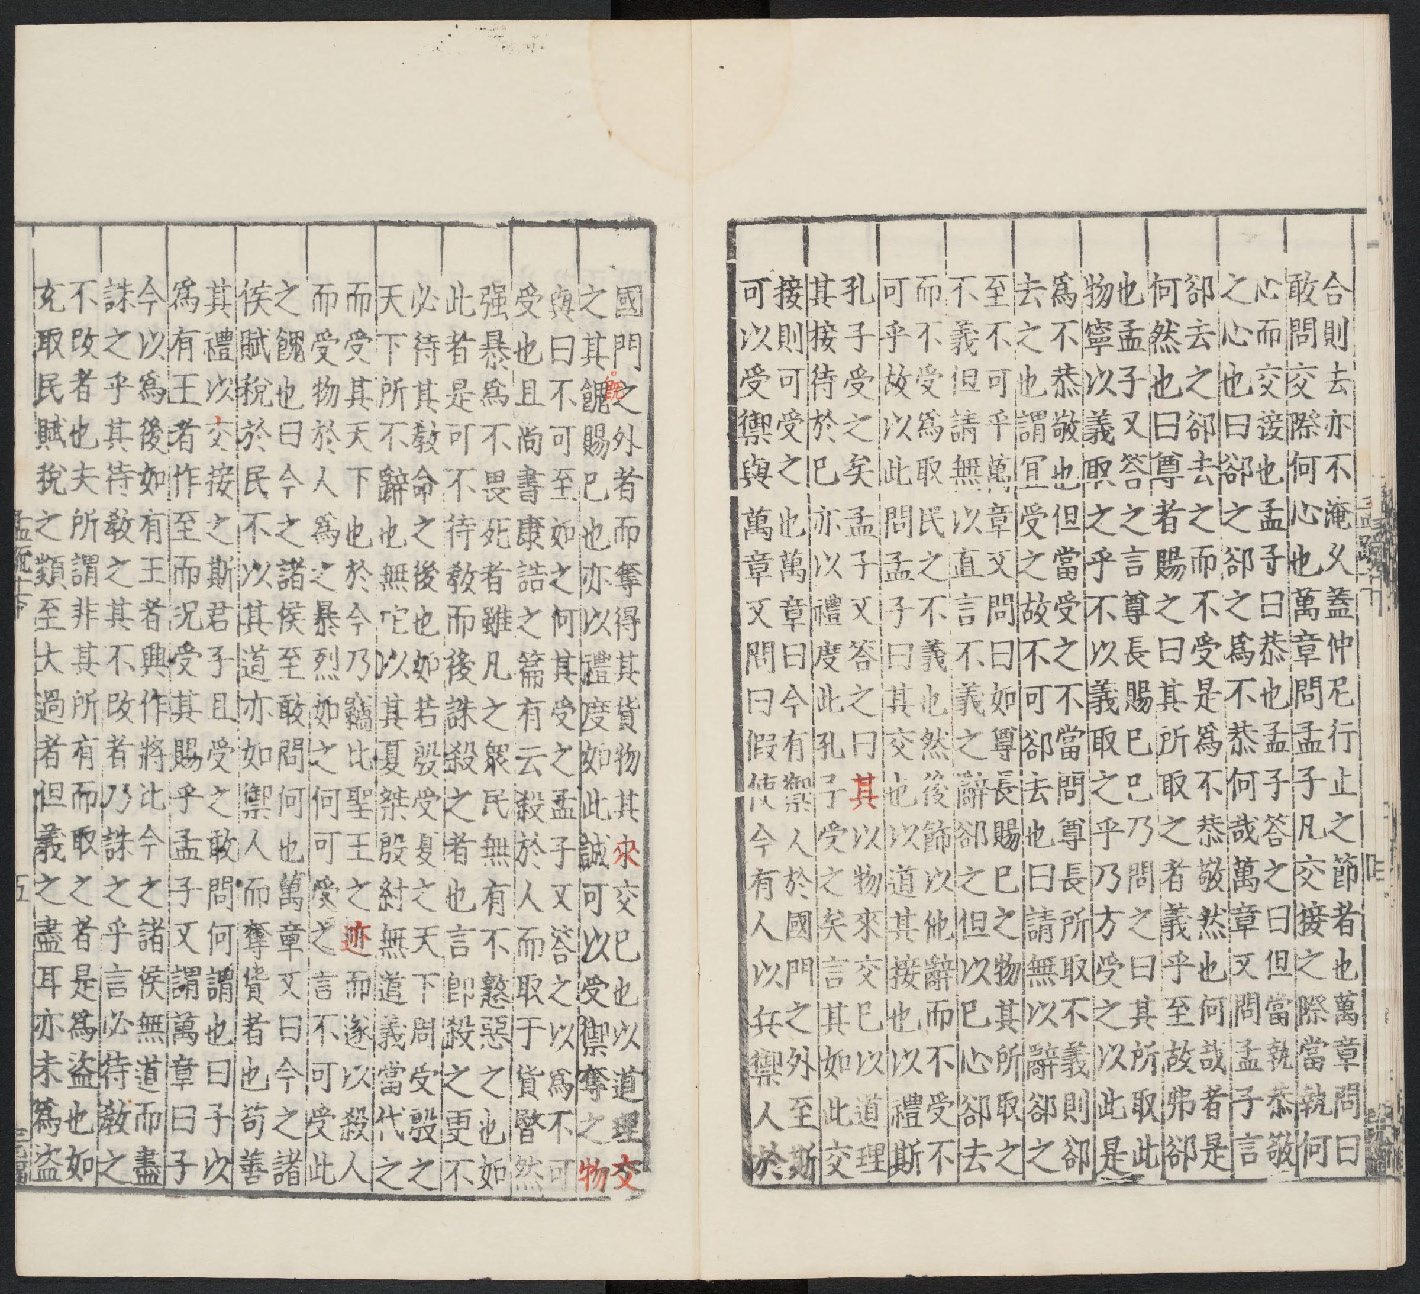 合則去亦不淹久蓋仲尼行止之節者也萬章問曰
敢問交際何心也萬章問孟子凡交接之際當執何
心而交接也孟子曰恭也孟子答之曰但當執恭敬
之心也曰卻之卻之為不恭何哉萬章又問孟子言
卻去之卻去之而不受是為不恭敬然也何哉者是
何然也曰尊者賜之曰其所取之者義乎至故弗卻
也孟子又答之言尊長賜巳巳乃問之曰其所取此
物寧以義取之乎不以義取之乎乃方受之以此是
為不恭敬也但當受之不當問尊長所取不義則卻
去之也謂宜受之故不可卻去也曰請無以辭卻之
至不可乎萬章又問曰如尊長賜巳之物其所取之
不義但請無以直言不義之辭卻之但以巳心卻去
而不受為取民之不義也然後飾以他辭而不受不
可乎故以此問孟子曰其交也以道其接也以禮斯
孔子受之矣孟子又答之曰其以物來交巳以道理
其接待於巳亦以禮度此孔子受之矣言其如此交
接則可受之也萬章曰今有禦人於國門之外至斯
可以受禦與萬章又問曰假使今有人以兵禦人於
國門之外者而奪得其貨物其來交巳也以道理交
之其餽賜巳也亦以禮度如此誠可以受禦奪之物
與曰不可至如之何其受之孟子又答之以為不可
受也且尚書康誥之篇有云殺於人而取于貨暋然
强暴為不畏死者雖凡之衆民無有不憝惡之也如
此者是可不待敎而後誅殺之者也言即殺之更不
必待其敎命之後也如若殷受夏之天下周受殷之
天下所不辭也無它以其夏桀殷紂無道義當代之
而受其天下也於今乃竊比聖王之迹而遂以殺人
而受物於人為之暴烈如之何可受之言不可受此
之餽也曰今之諸侯至敢問何也萬章又曰今之諸
侯賦稅於民不以其道亦如禦人而奪貨者也苟善
其禮以交接之斯君子且受之敢問何謂也曰子以
為有王者作至而況受其賜乎孟子又謂萬章曰子
今以為後如有王者興作將比今之諸侯無道而盡
誅之乎其待敎之其不改者乃誅之乎言必待敎之
不改者也夫所謂非其所有而取之者是為盜也如
充取民賦稅之類至大過者但義之盡耳亦未為盜